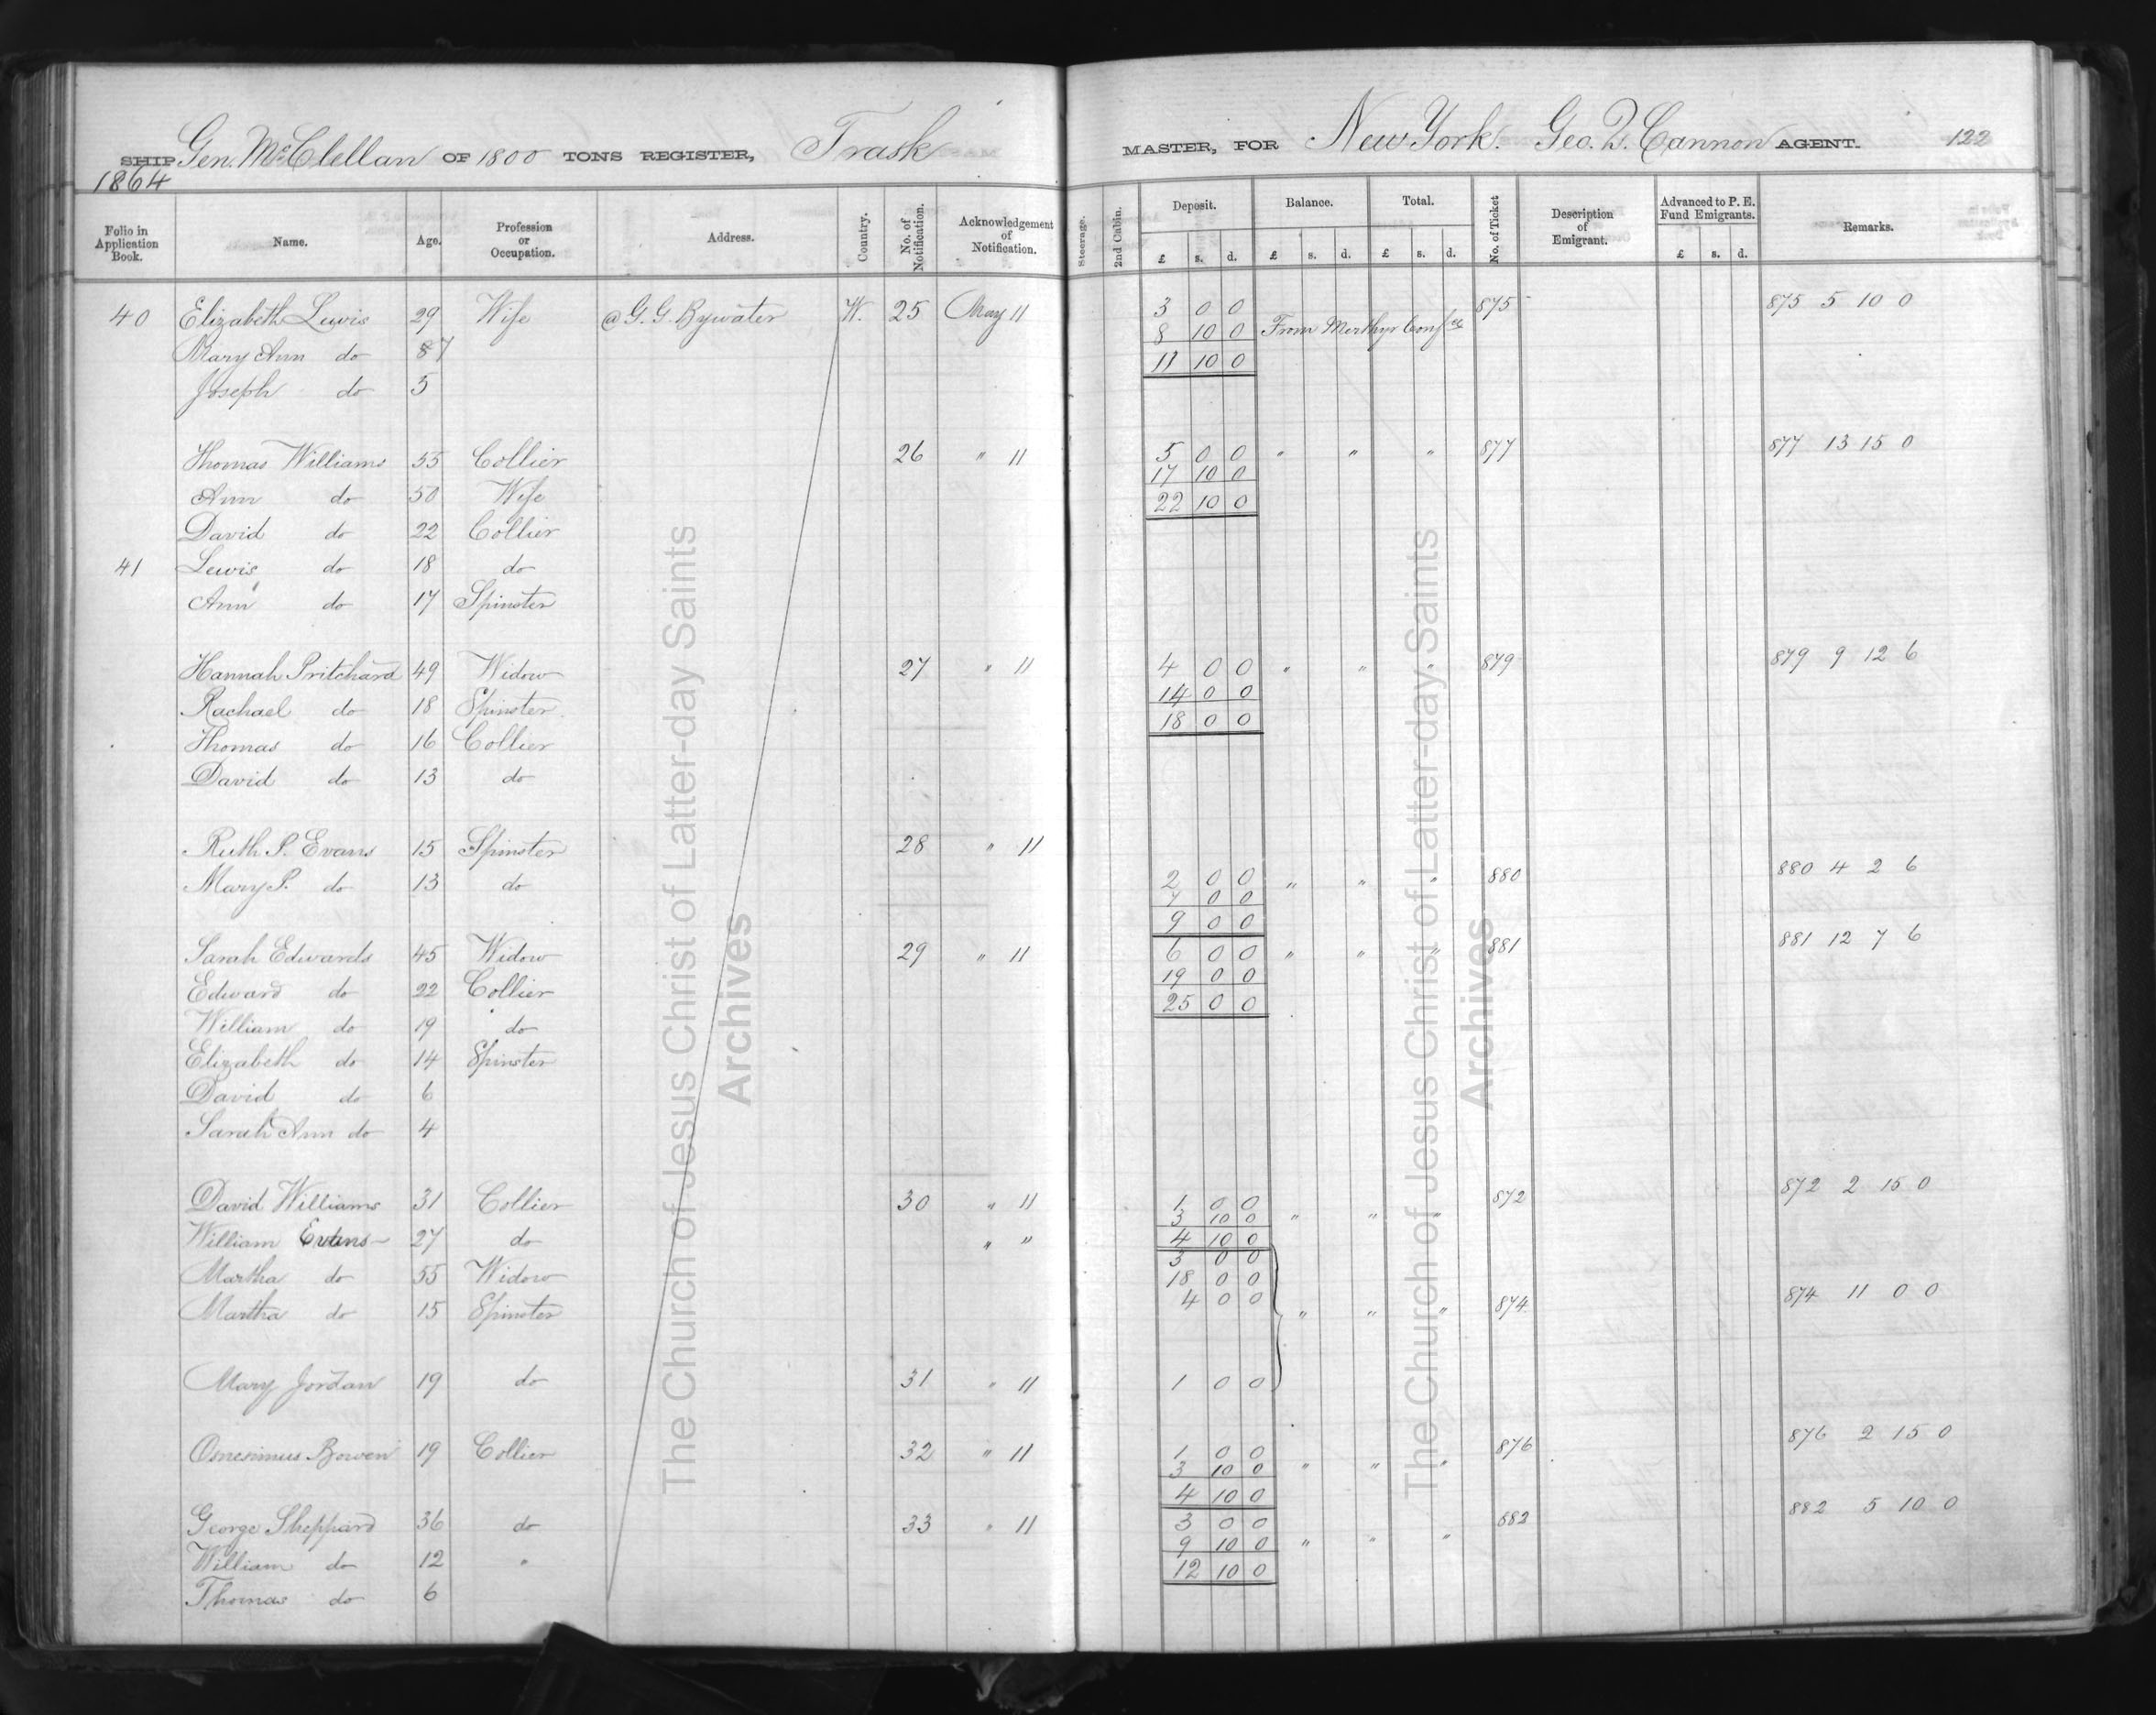 SHIP Gen. McClellan OF 1800 TONS REGISTER, Trask MASTER, FOR New York. Geo. Q. Cannon AGENT. 122
1864
Folio in Application Book. Name. Age. Profession or Occupation. Address. Country. No. of Notification. Acknowledgement of Notification. Steerage. 2nd Cabin. Deposit. Balance. Total. No. of Ticket Description of Emigrant. Advanced to P. E. Fund Emigrants. Remarks.
£ s. d. £ s. d. £ s. d. £ s. d.
40 Elizabeth Lewis 29 Wife @ G. G. Bywater W. 25 May 11 3 0 0 875 875 5 10 0
8 10 0 From Merthyr Confce
Mary Ann do 7 11 10 0
Joseph do 5
Thomas Williams 55 Collier 26 " 11 5 0 0 " " " 877 877 13 15 0
17 10 0
Ann do 50 Wife 22 10 0
David do 22 Collier
41 Lewis do 18 do
Ann do 17 Spinster
Hannah Pritchard 49 Widow 27 " 11 4 0 0 " " " 879 879 9 12 6
14 0 0
Rachael do 18 Spinster 18 0 0
Thomas do 16 Collier
David do 13 do
Ruth P. Evans 15 Spinster 28 " 11
Mary P. do 13 do 2 0 0 " " " 880 880 4 2 6
7 0 0
9 0 0
Sarah Edwards 45 Widow 29 " 11 6 0 0 " " " 881 881 12 7 6
19 0 0
Edward do 22 Collier 25 0 0
William do 19 do
Elizabeth do 14 Spinster
David do 6
Sarah Ann do 4
David Williams 31 Collier 30 " 11 1 0 0 872 872 2 15 0
3 10 0 " " "
William Evans 27 do " " 4 10 0
3 0 0
Martha do 55 Widow 18 0 0
4 0 0
Martha do 15 Spinster " " " 874 874 11 0 0
Mary Jordan 19 do 31 " 11 1 0 0
Onesimus Bowen 19 Collier 32 " 11 1 0 0 876 876 2 15 0
3 10 0 " " "
4 10 0
George Sheppard 36 do 33 " 11 3 0 0 882 882 5 10 0
9 10 0 " " "
William do 12 " 12 10 0
Thomas do 6
The Church of Jesus Christ of Latter-day Saints
Archives
The Church of Jesus Christ of Latter-day Saints
Archives